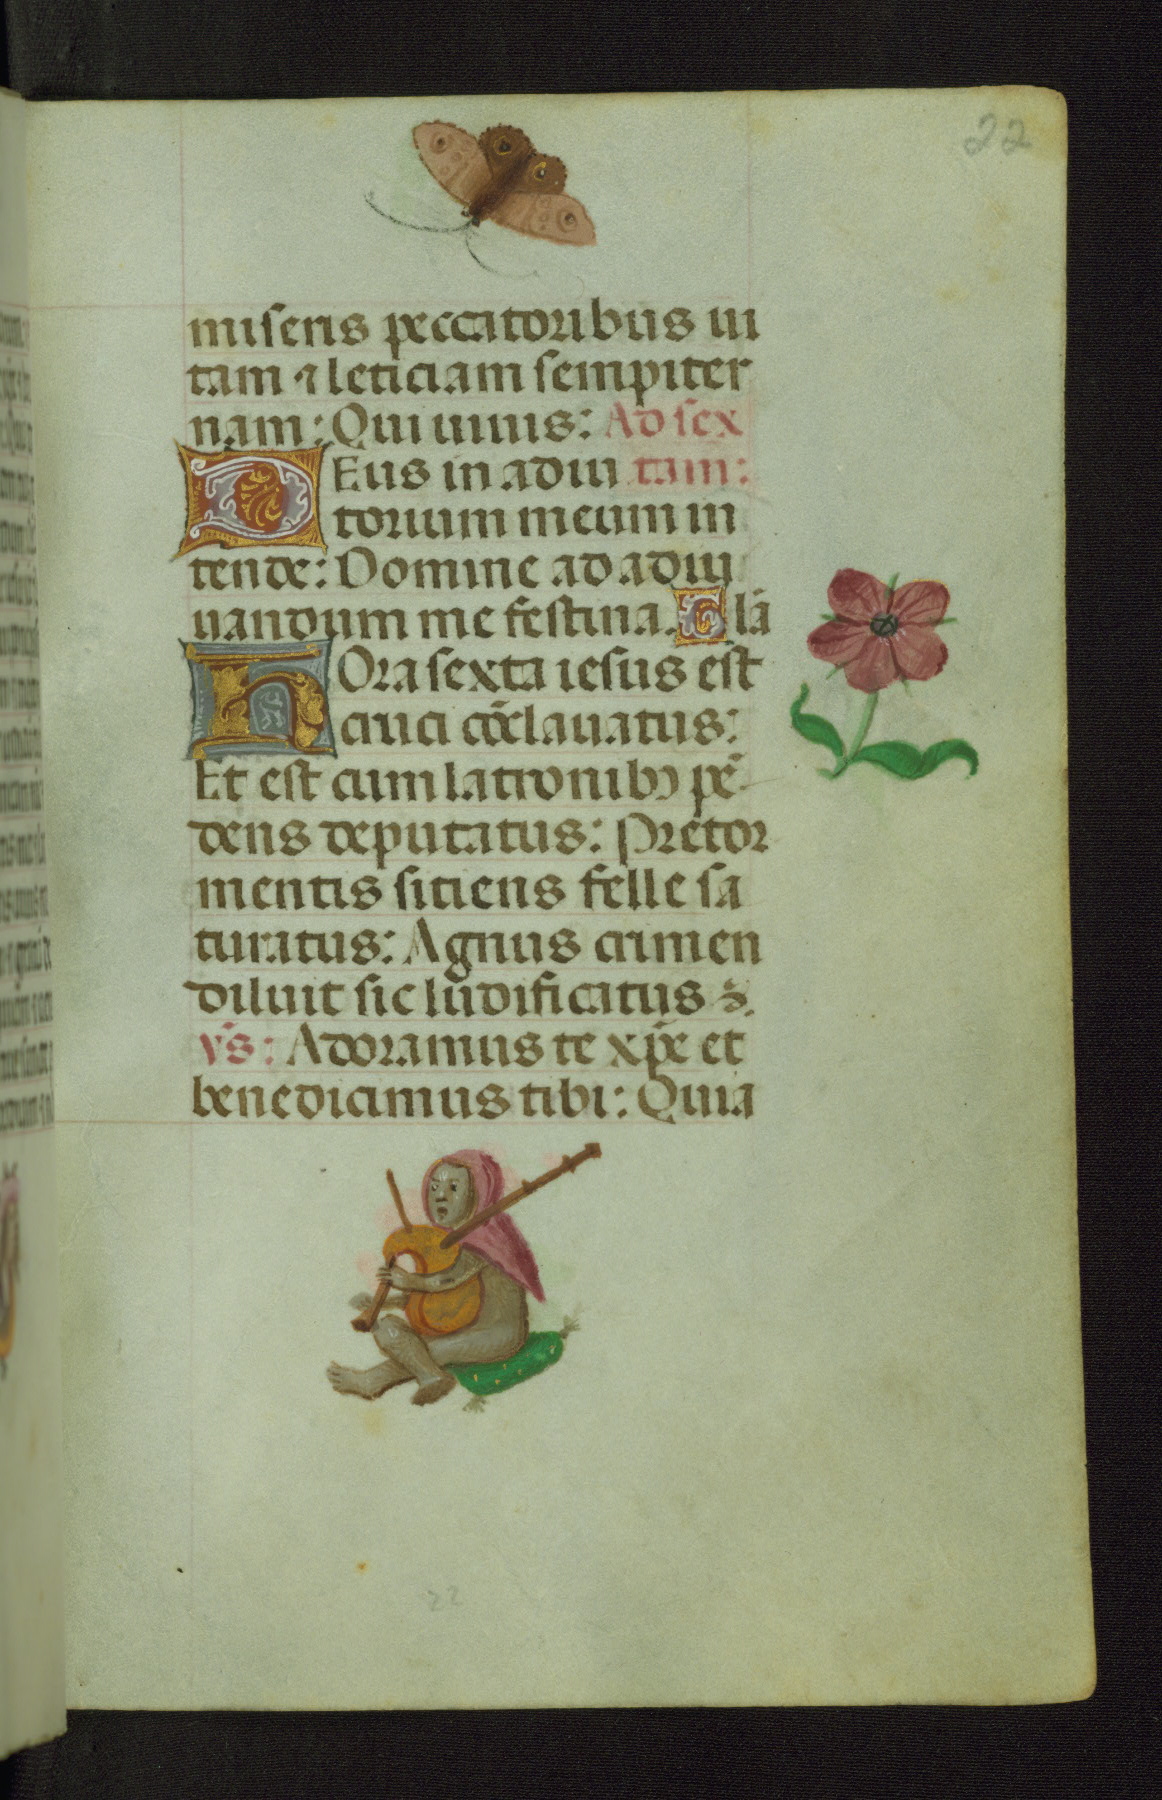 22
miseris peccatoribus ui
tam ⁊ leticiam sempiter
nam: Qui uiuis: Ad sex
DEus in adiu tam:
torium meum in
tende: Domine ad adiu
uandum me festina. Glã
HOra sexta iesus est
cruci cõclauatus:
Et est cum latronibꝫ pẽ
dens deputatus: Pre tor
mentis sitiens felle sa
turatus: Agnus crimen
diluit sic ludificatus
v̄s: Adoramus te xp̄e et
benedicimus tibi: Quia
22